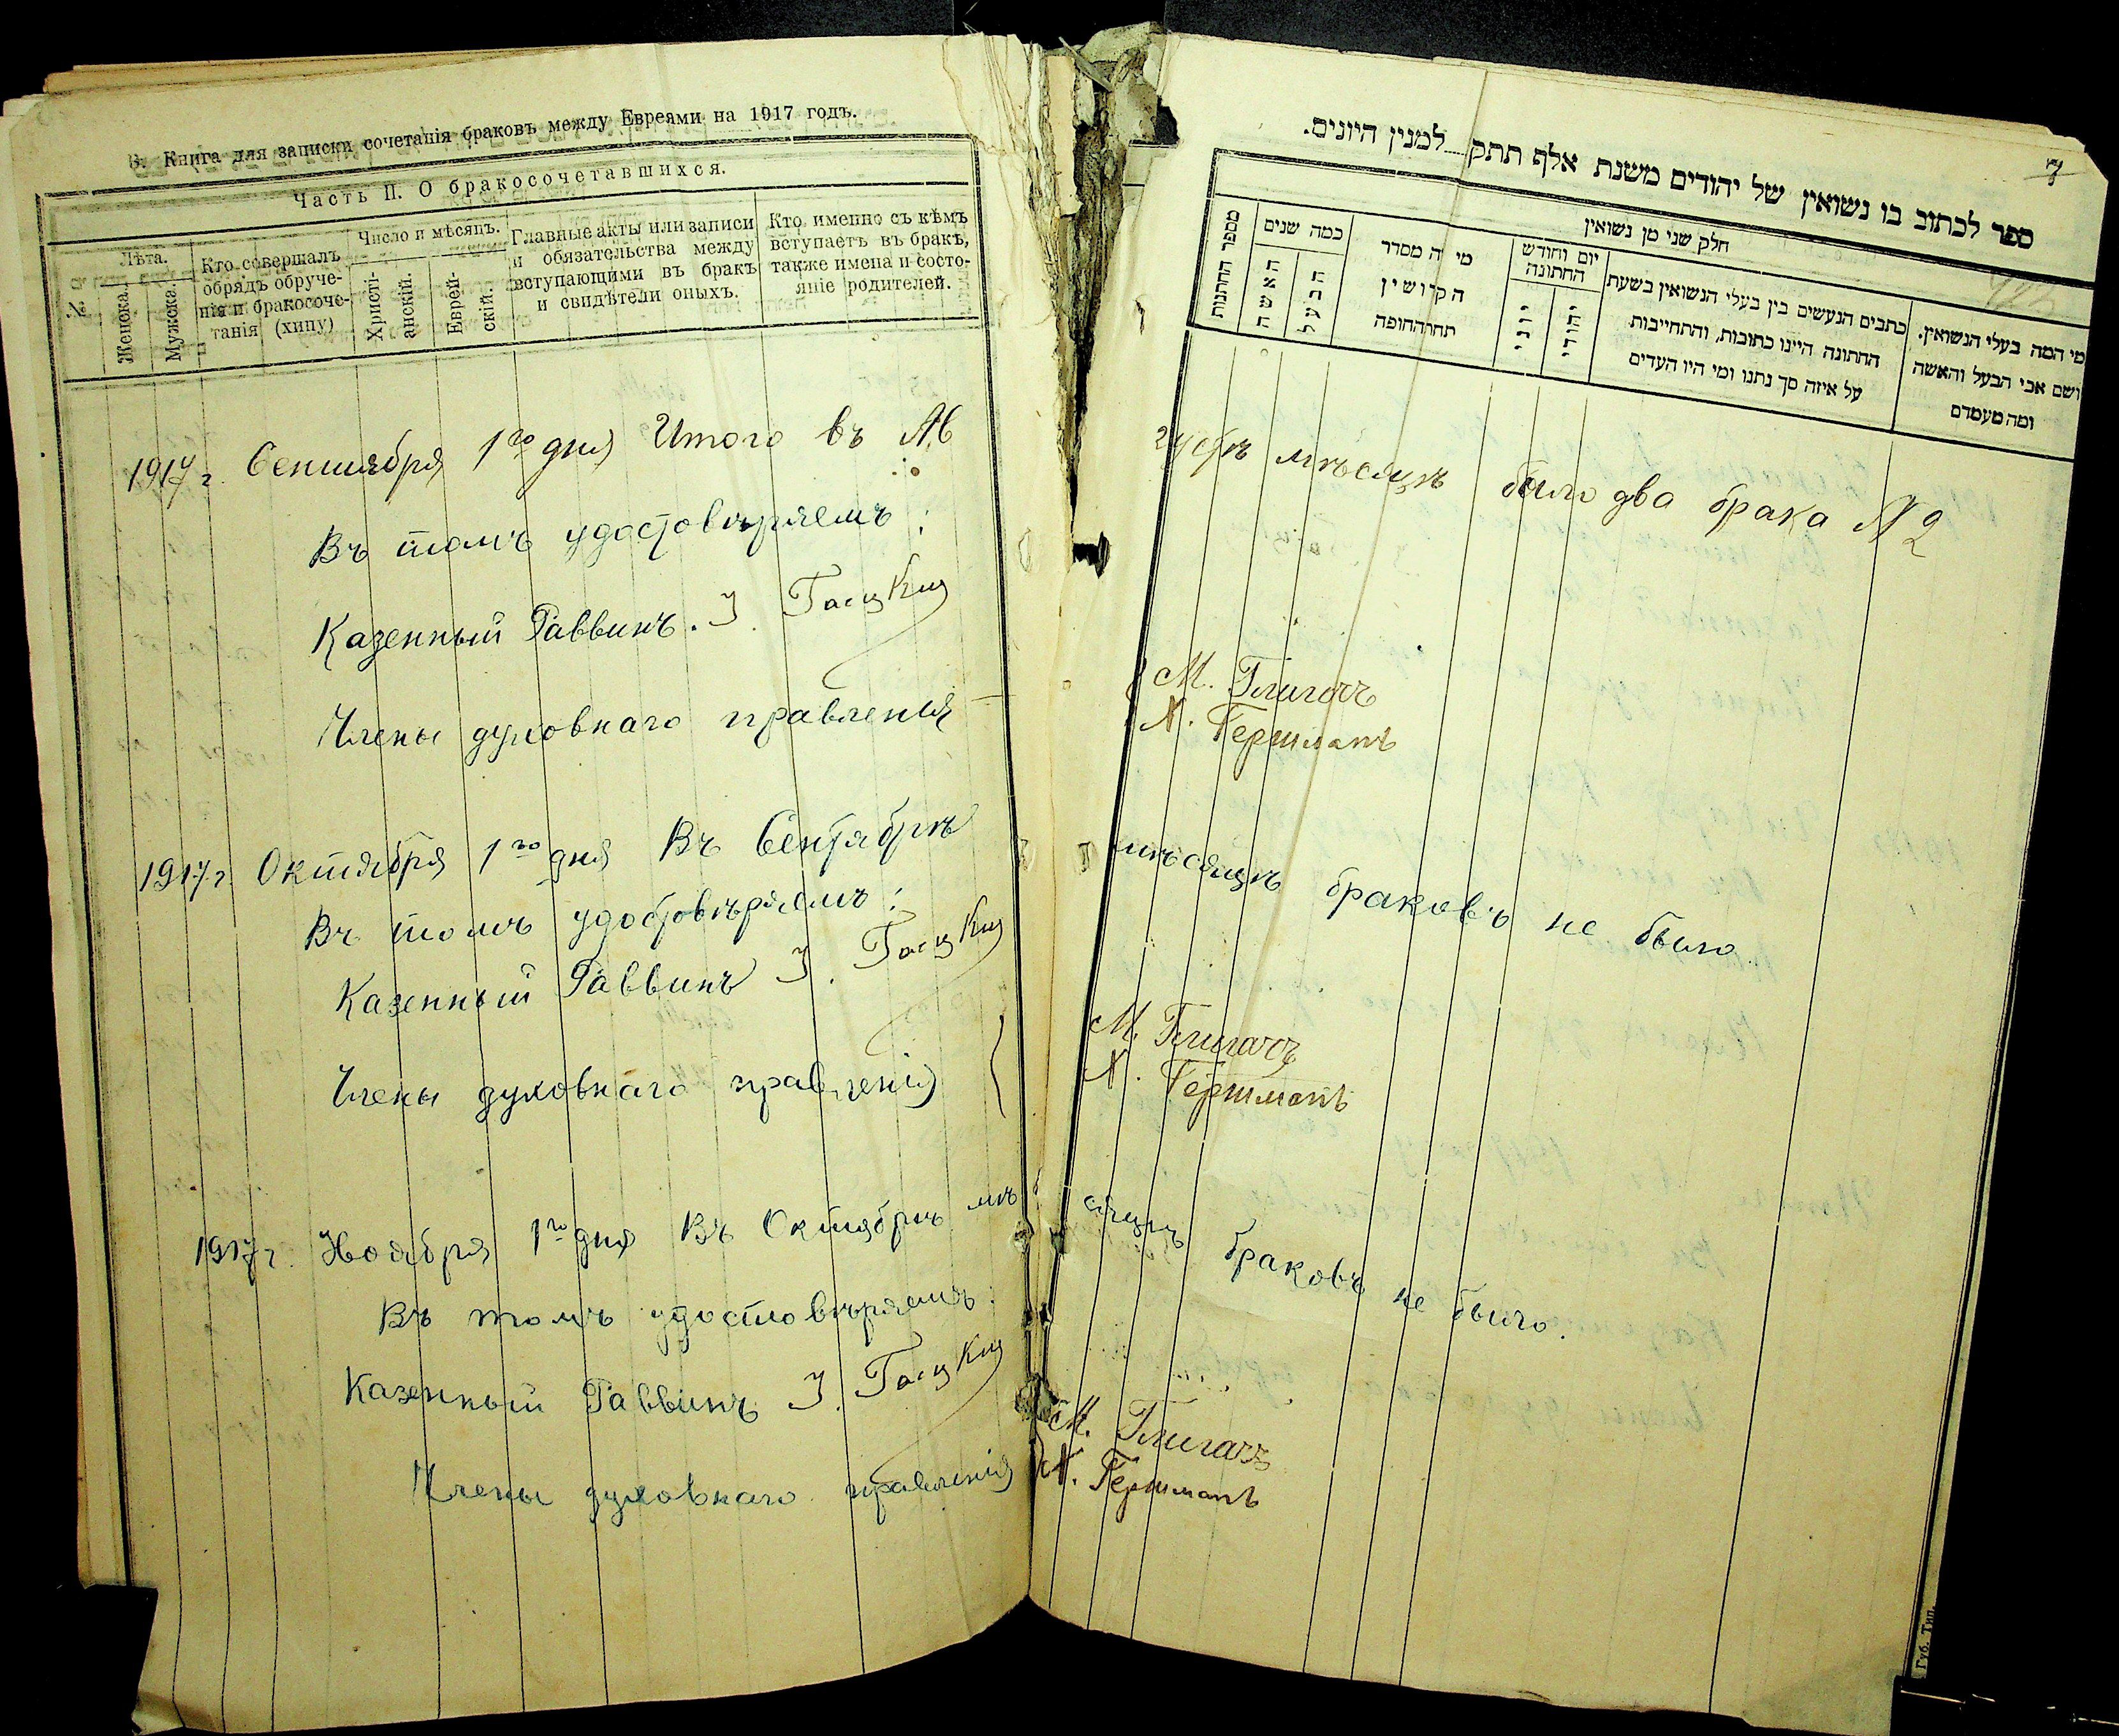 3. Книга для записки сочетанія браковъ между Евреями на 1917 годъ.
Часть II. О бракосочетавшихся.
№
Лѣта.
Женска.
Мужска.
Кто совершалъ
обрядъ обруче-
нія и бракосоче-
танія (хипу)
Число и мѣсяцъ.
Христі-
анскій.
Еврей-
скій.
Главные акты или записи
и обязательства между
вступающими въ бракъ
и свидѣтели оныхъ.
Кто именно съ кѣмъ
вступаетъ въ бракъ,
также имена и состо-
яніе родителей.
1917 г. Сентября 1го дня Итого въ Ав
Въ томъ удостовѣряемъ:
Казенный Раввинъ. І.
Члены духовнаго правленія
1917 г. Октября 1го дня Въ Сентябрѣ
Въ томъ удостовѣряемъ:
Казенный Раввинъ І.
Члены духовнаго правленія
1917 г. Ноября 1го дня Въ Октябрѣ мѣ
Въ томъ удостовѣряемъ:
Казенный Раввинъ І.
Члены духовнаго правленія
7
ספר לכתוב בו נשואין של יהודים משנת אלף תתק למנין היונים.
חלק שני מן נשואין
מספר החתנות
כמה שנים
האשה
הבעל
מי ה מסדר
הקדושין
תחת החופה
יום וחודש
החתונה
יוני
יהודי
כתבים הנעשים בין בעלי הנשואין בשעת
החתונה היינו כתובות, והתחייבות
על איזה סך נתנו ומי היו העדים
מי המה בעלי הנשואין.
ושם אבי הבעל והאשה
ומה מעמדם
густѣ мѣсяцѣ было два брака № 2
М.
Х. Гершманъ
мѣсяцѣ браковъ не было
М.
Х. Гершманъ
сяцѣ браковъ не было.
М.
Х. Гершманъ
Губ. Тип.